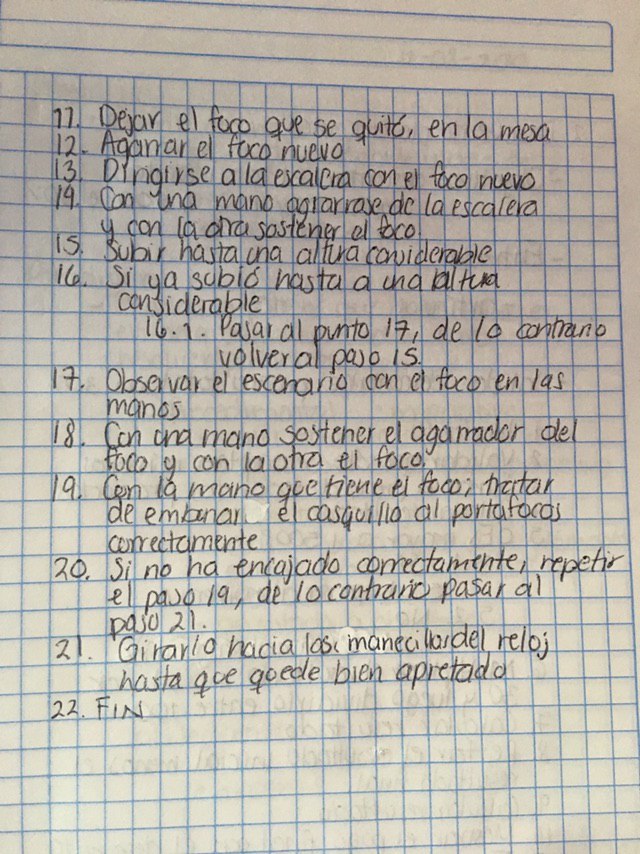 11. Dejar el foco que se quitó, en la mesa
12. Agarrar el foco nuevo
13. Dirigirse a la escalera con el foco nuevo
14. Con una mano agarrarse de la escalera
y con la otra sostener el foco.
15. Subir hasta una altura considerable
16. Si ya subió hasta a una altura
considerable
16.1. Pasar al punto 17, de lo contrario
volver al paso 15.
17. Observar el escenario con el foco en las
manos
18. Con una mano sostener el agarrador del
foco y con la otra el foco.
19. Con la mano que tiene el foco; tratar
de embonar el casquillo al portafocos
correctamente
20. Si no ha encajado correctamente, repetir
el paso 19, de lo contrario pasar al
paso 21.
21. Girarlo hacia las manecillas del reloj
hasta que quede bien apretado
22. FIN